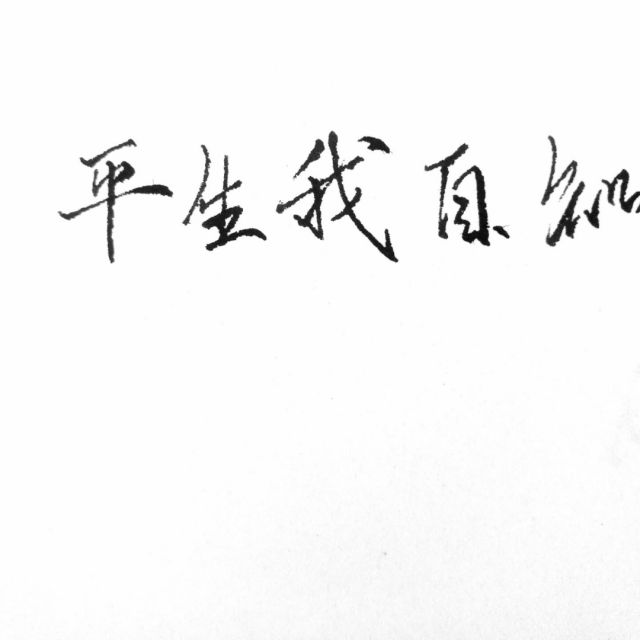 平生我自知